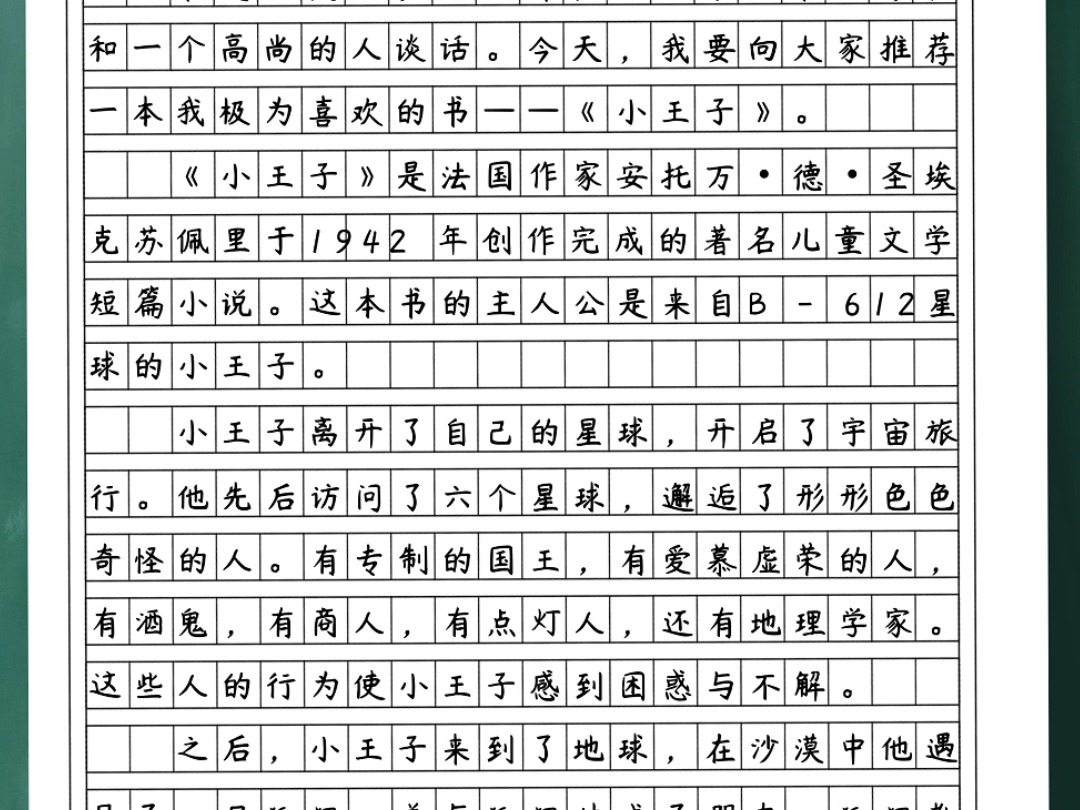 和一个高尚的人谈话。今天，我要向大家推荐
一本我极为喜欢的书——《小王子》。
《小王子》是法国作家安托万·德·圣埃
克苏佩里于1942 年创作完成的著名儿童文学
短篇小说。这本书的主人公是来自B-612星
球的小王子。
小王子离开了自己的星球，开启了宇宙旅
行。他先后访问了六个星球，邂逅了形形色色
奇怪的人。有专制的国王，有爱慕虚荣的人，
有酒鬼，有商人，有点灯人，还有地理学家。
这些人的行为使小王子感到困惑与不解。
之后，小王子来到了地球，在沙漠中他遇